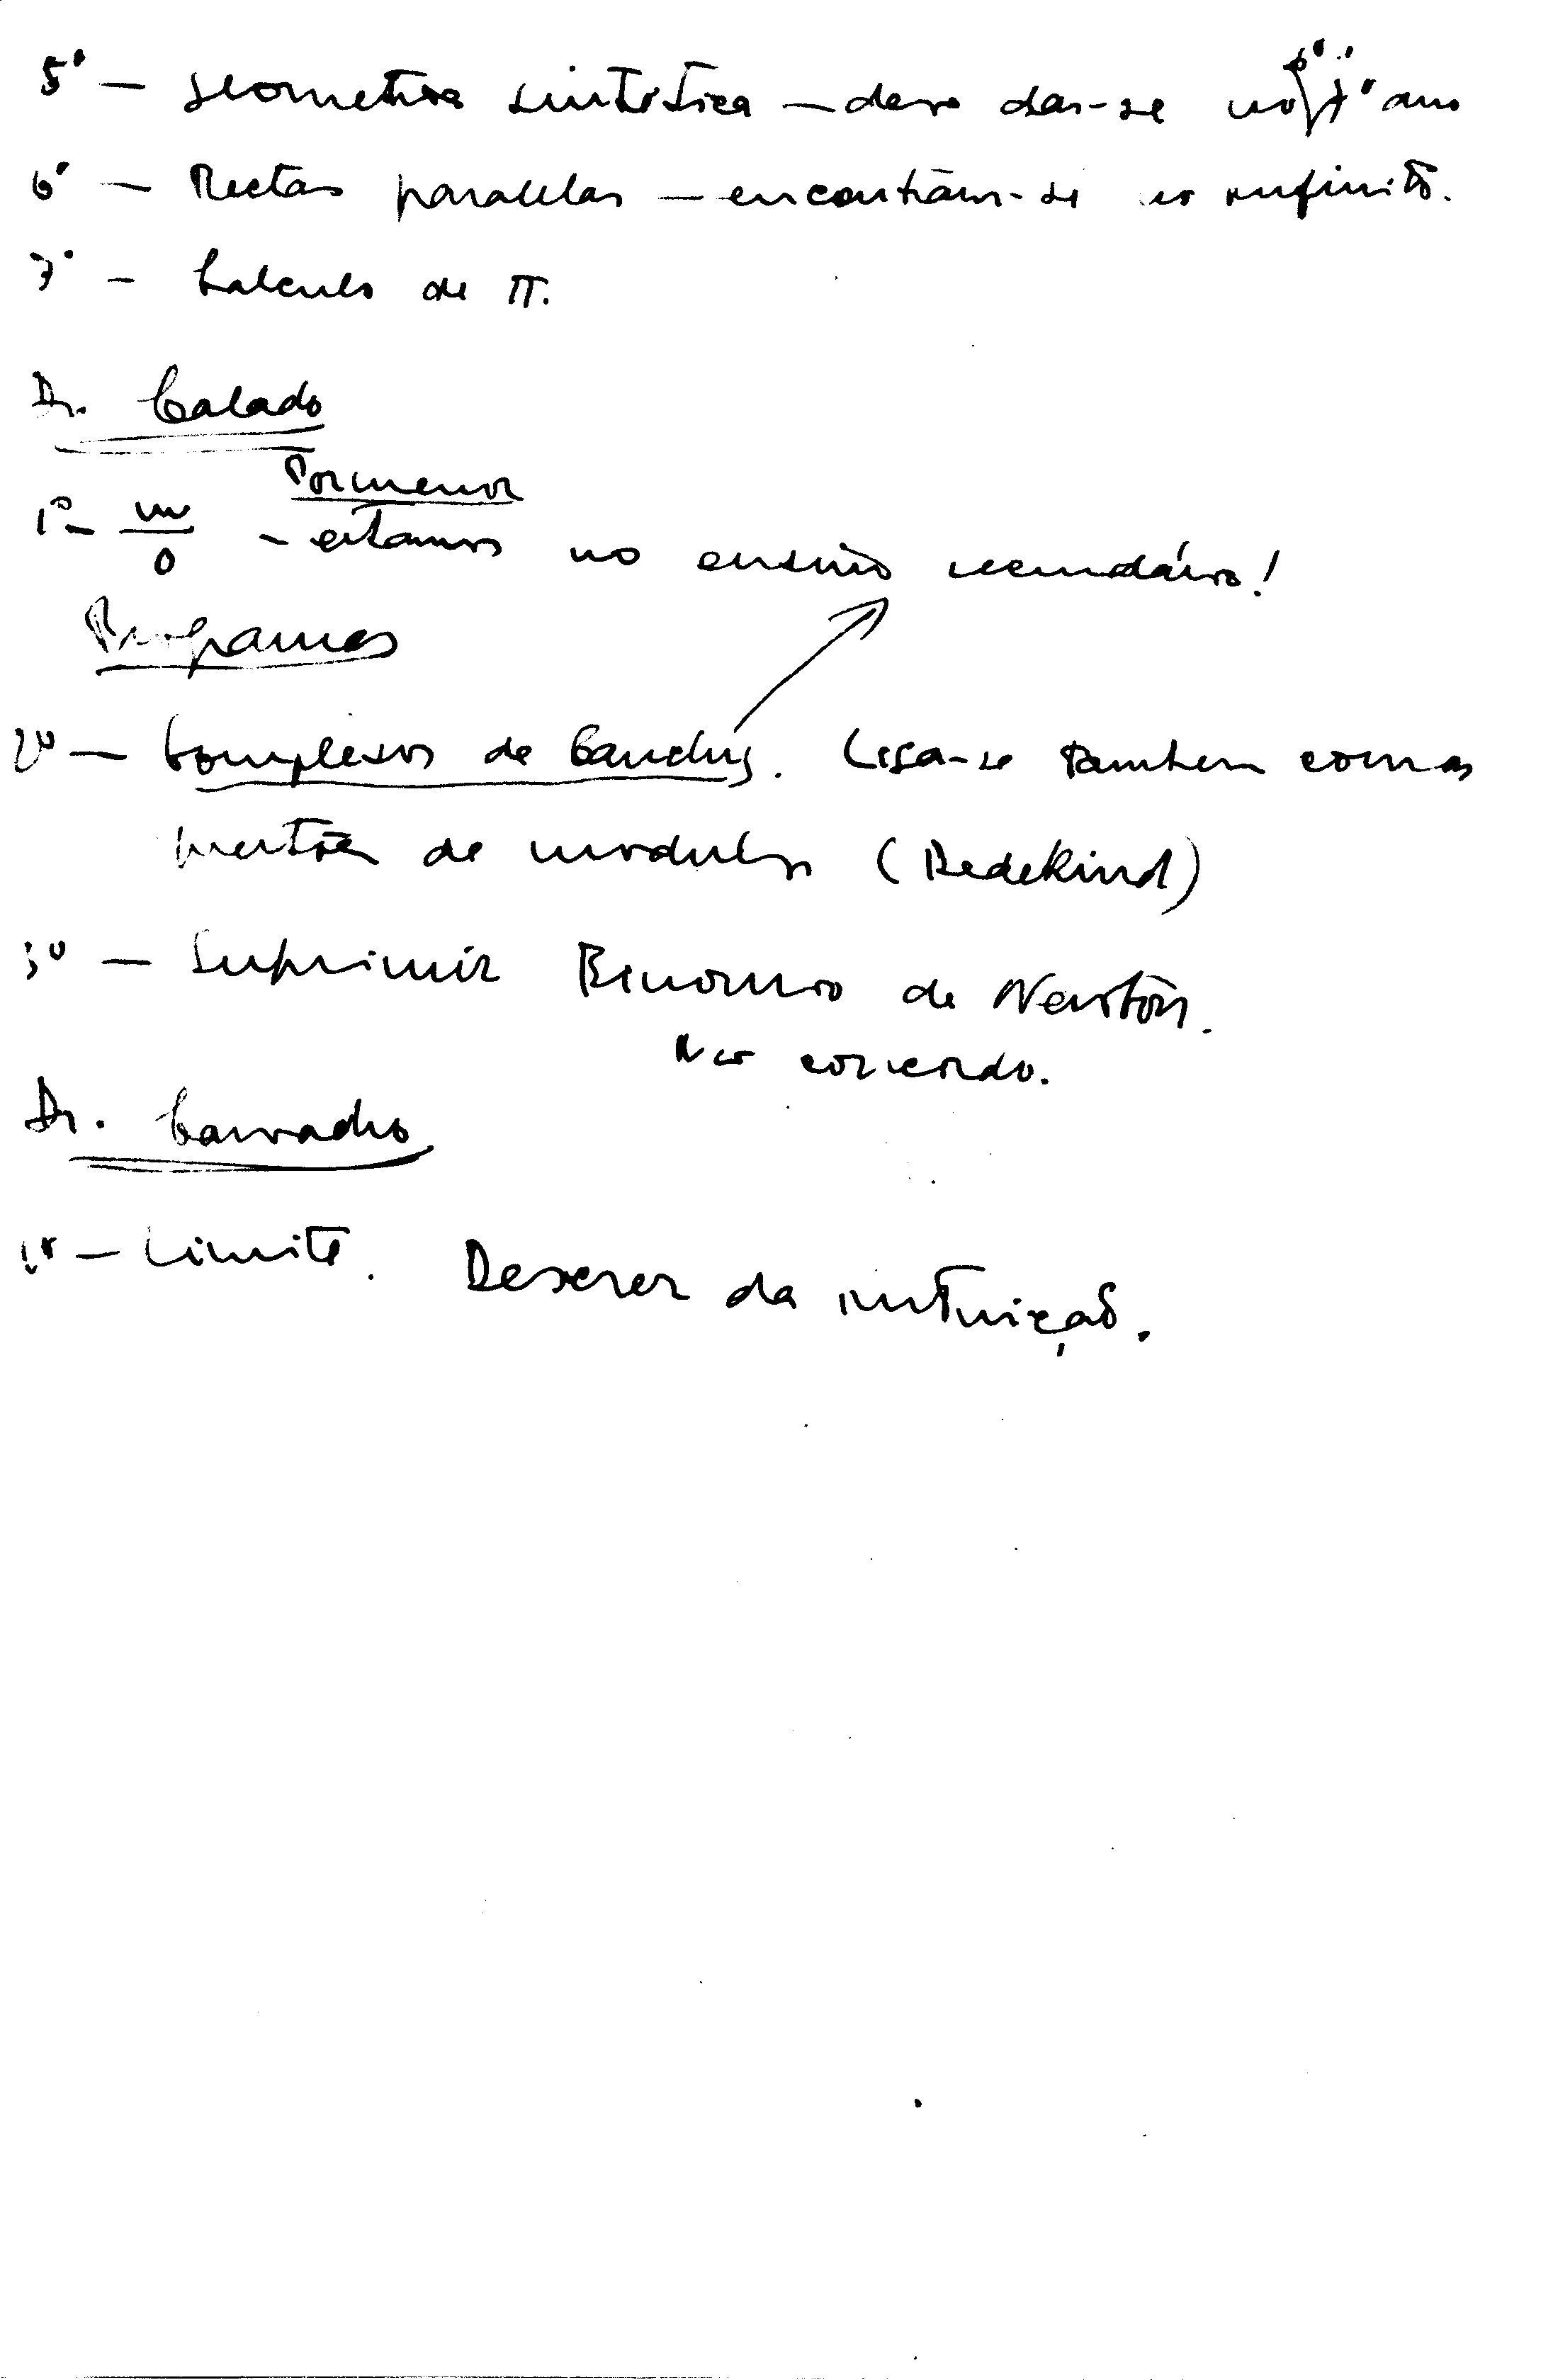 5º — geometria sintética — deve dar-se no 6º 7º ano
6º — Rectas paralelas — encontram-se no infinito.
7º — Calculo de π.
Dr. Calado
Pormenor
1º — m/0 — estamos no ensino secundário!
Programas
2º — Complexos de Cauchy. Liga-se tambem com as
questões de modulos (Dedekind)
3º — Suprimir Binomio de Newton.
Não concordo.
Dr.
1º — Limite. Descrer da intuição.